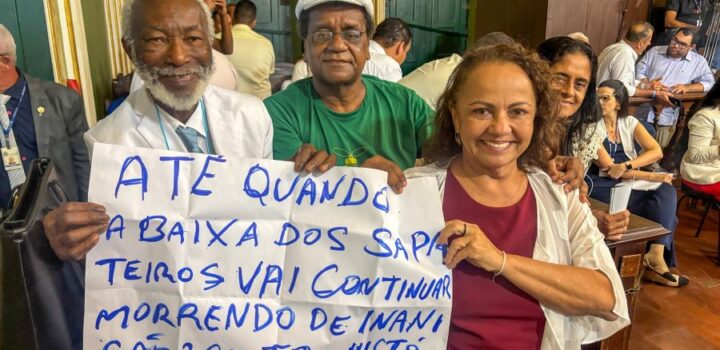 ATÉ QUANDO
A BAIXA DOS SAPA
TEIROS VAI CONTINUAR
MORRENDO DE INANI